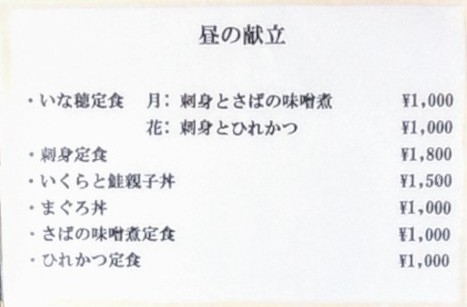 昼の献立
・いな穂定食 月: 刺身とさばの味噌煮 ¥1,000
花: 刺身とひれかつ ¥1,000
・刺身定食 ¥1,800
・いくらと鮭親子丼 ¥1,500
・まぐろ丼 ¥1,000
・さばの味噌煮定食 ¥1,000
・ひれかつ定食 ¥1,000